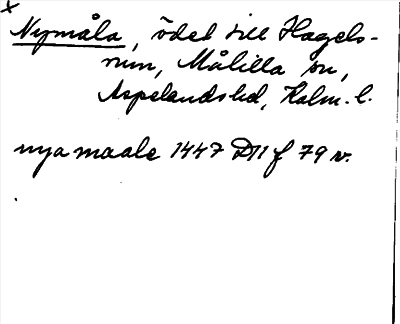 x
Nymåla, ödet till Hagels-
rum, Målilla sn,
Aspelands hd, Kalm. l.
nya maale 1447 D11 f 79 v.